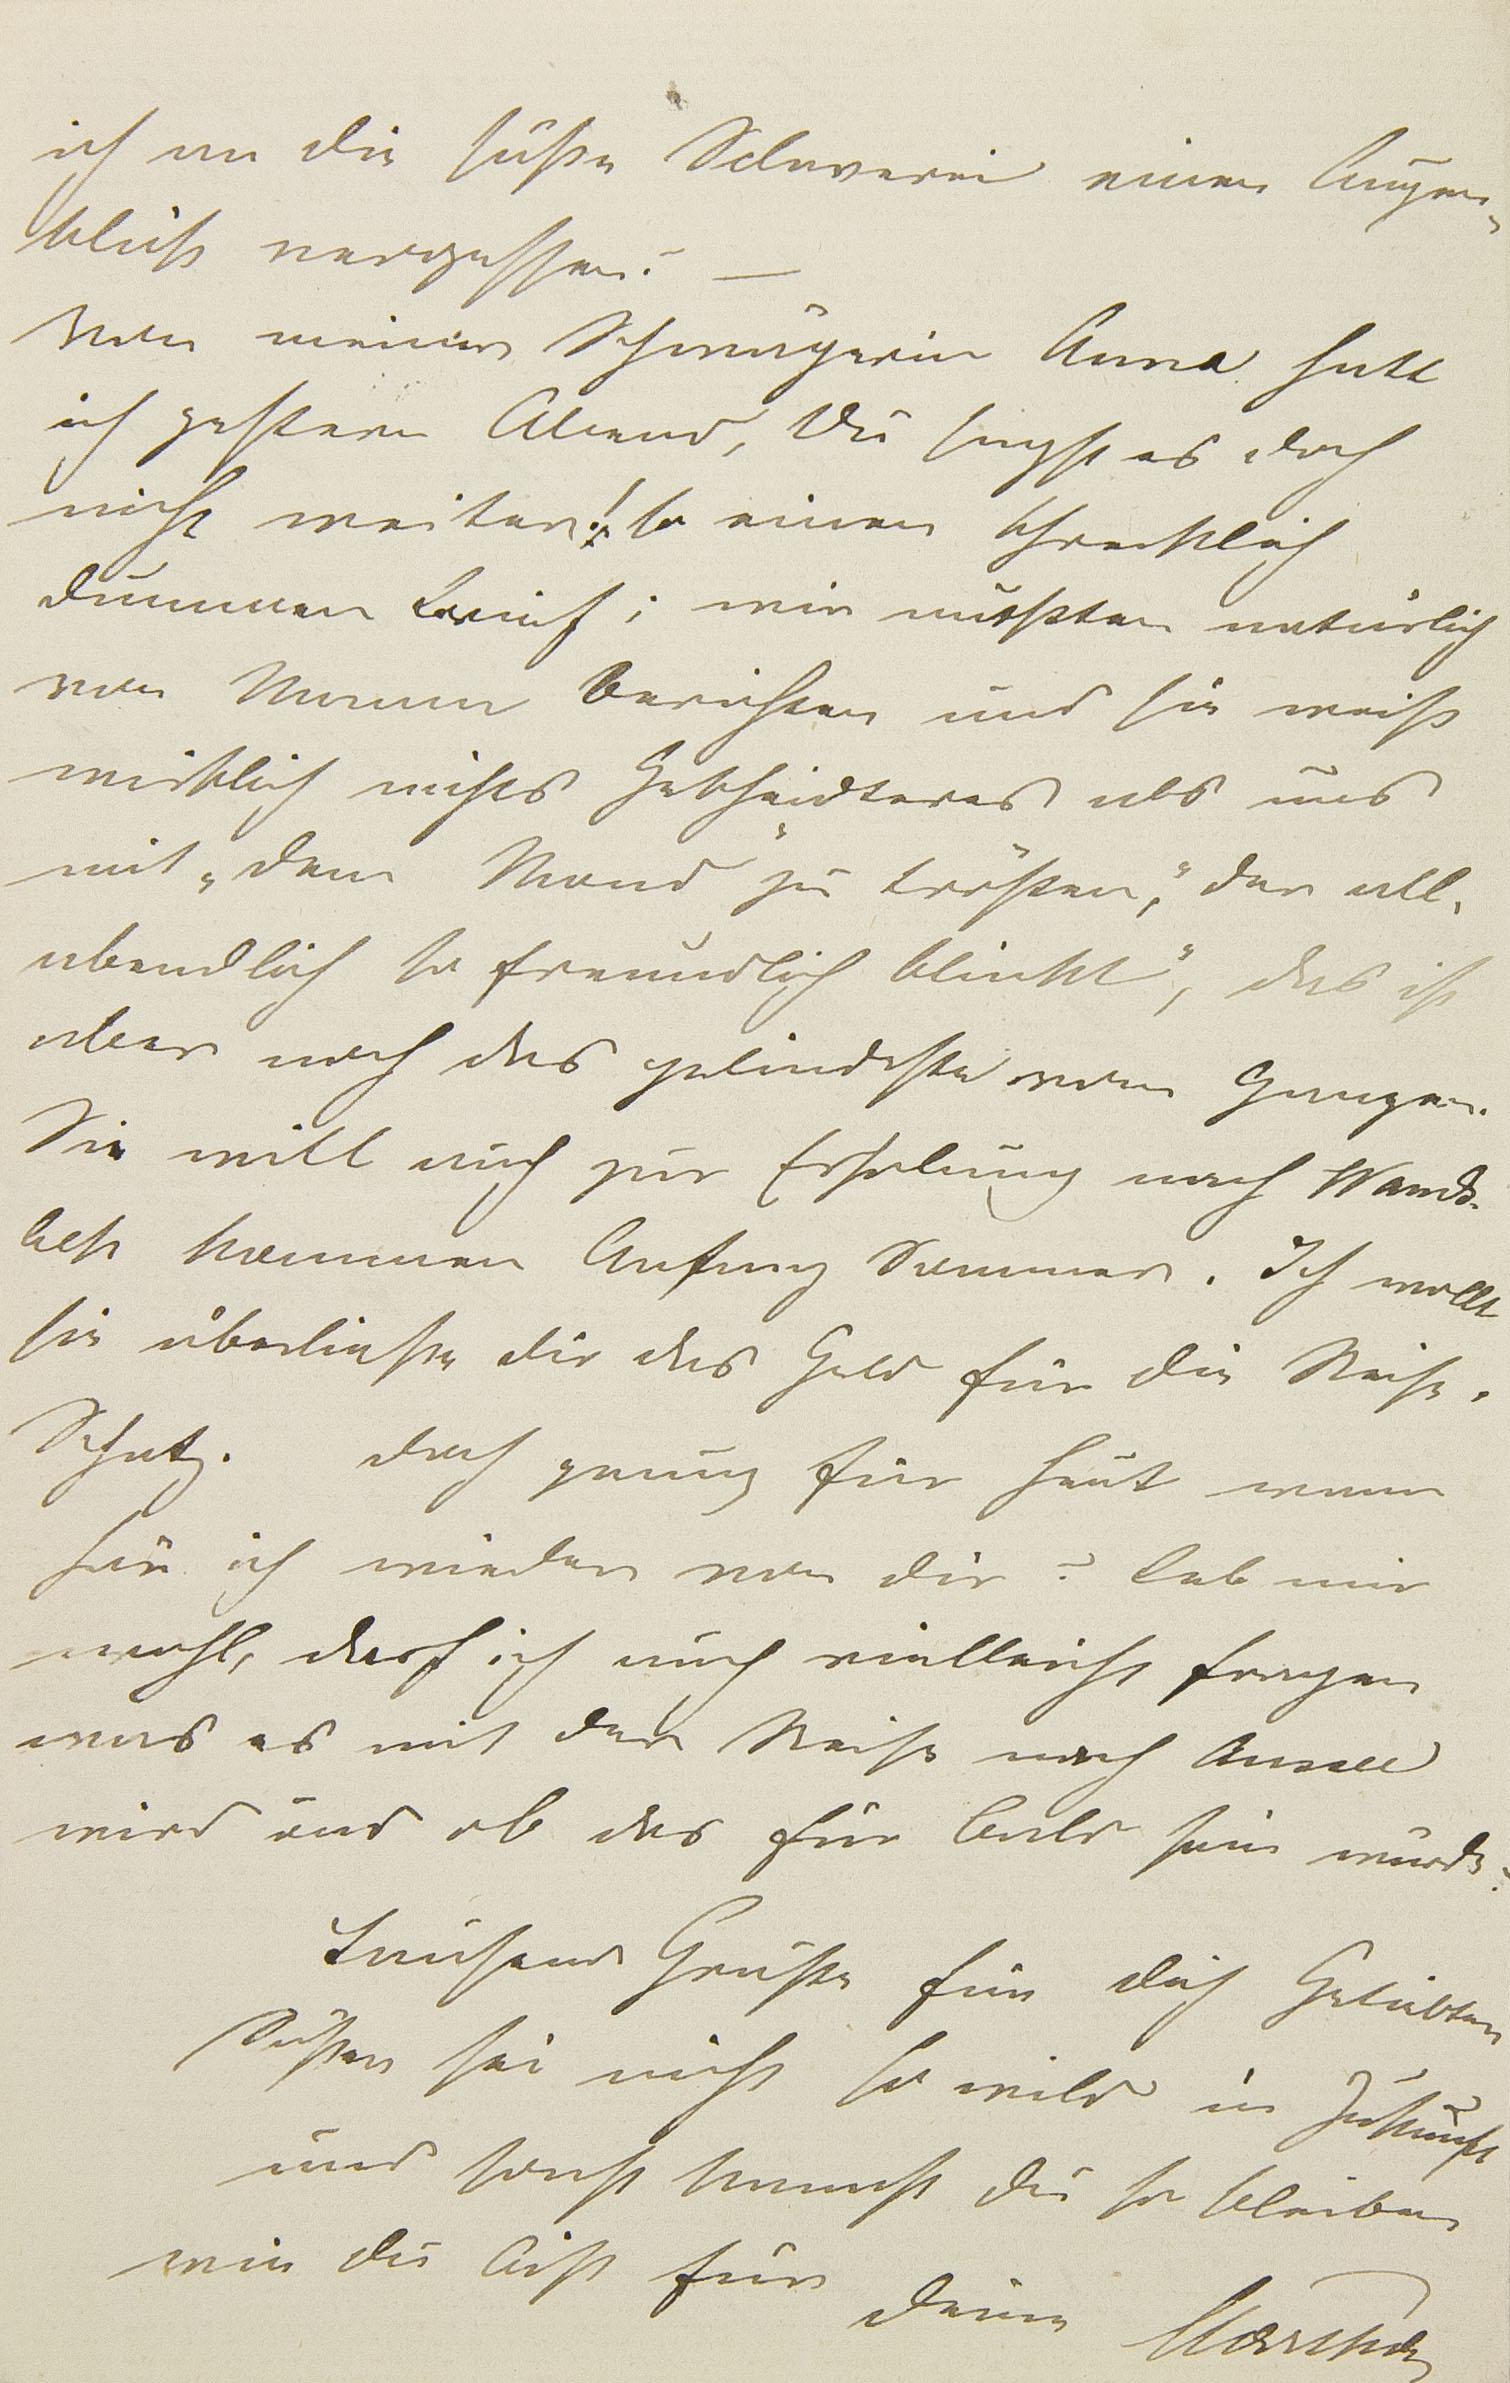 ich an die süße Sclaverei einen Augen-
blick vergessen? —
Von meiner Schwägerin Anna hatt
ich gestern Abend, Du sagst es doch
nicht weiter! so einen schrecklich
dummen Brief; wir mußten natürlich
von Mama berichten und sie weiß
wirklich nichts Gescheidteres als uns
mit „dem Mond" zu trösten, „der all-
abendlich so freundlich blinkt", das ist
aber noch das gelindeste vom Ganzen.
Sie will auch zur Erholung nach Wands-
bek kommen Anfang Sommer. Ich wollt
sie überließe dir das Geld für die Reise,
Schatz. doch genug für heut wann
hör ich wieder von dir? Leb mir
wohl, darf ich auch vielleicht fragen
was es mit der Reise nach
wird und ob das für bald sein würde?
Tausend Grüße für dich Geliebten
Süßen sei nicht so wild in Zukunft
und sonst kannst du so bleiben
wie du bist für
deine Marthe